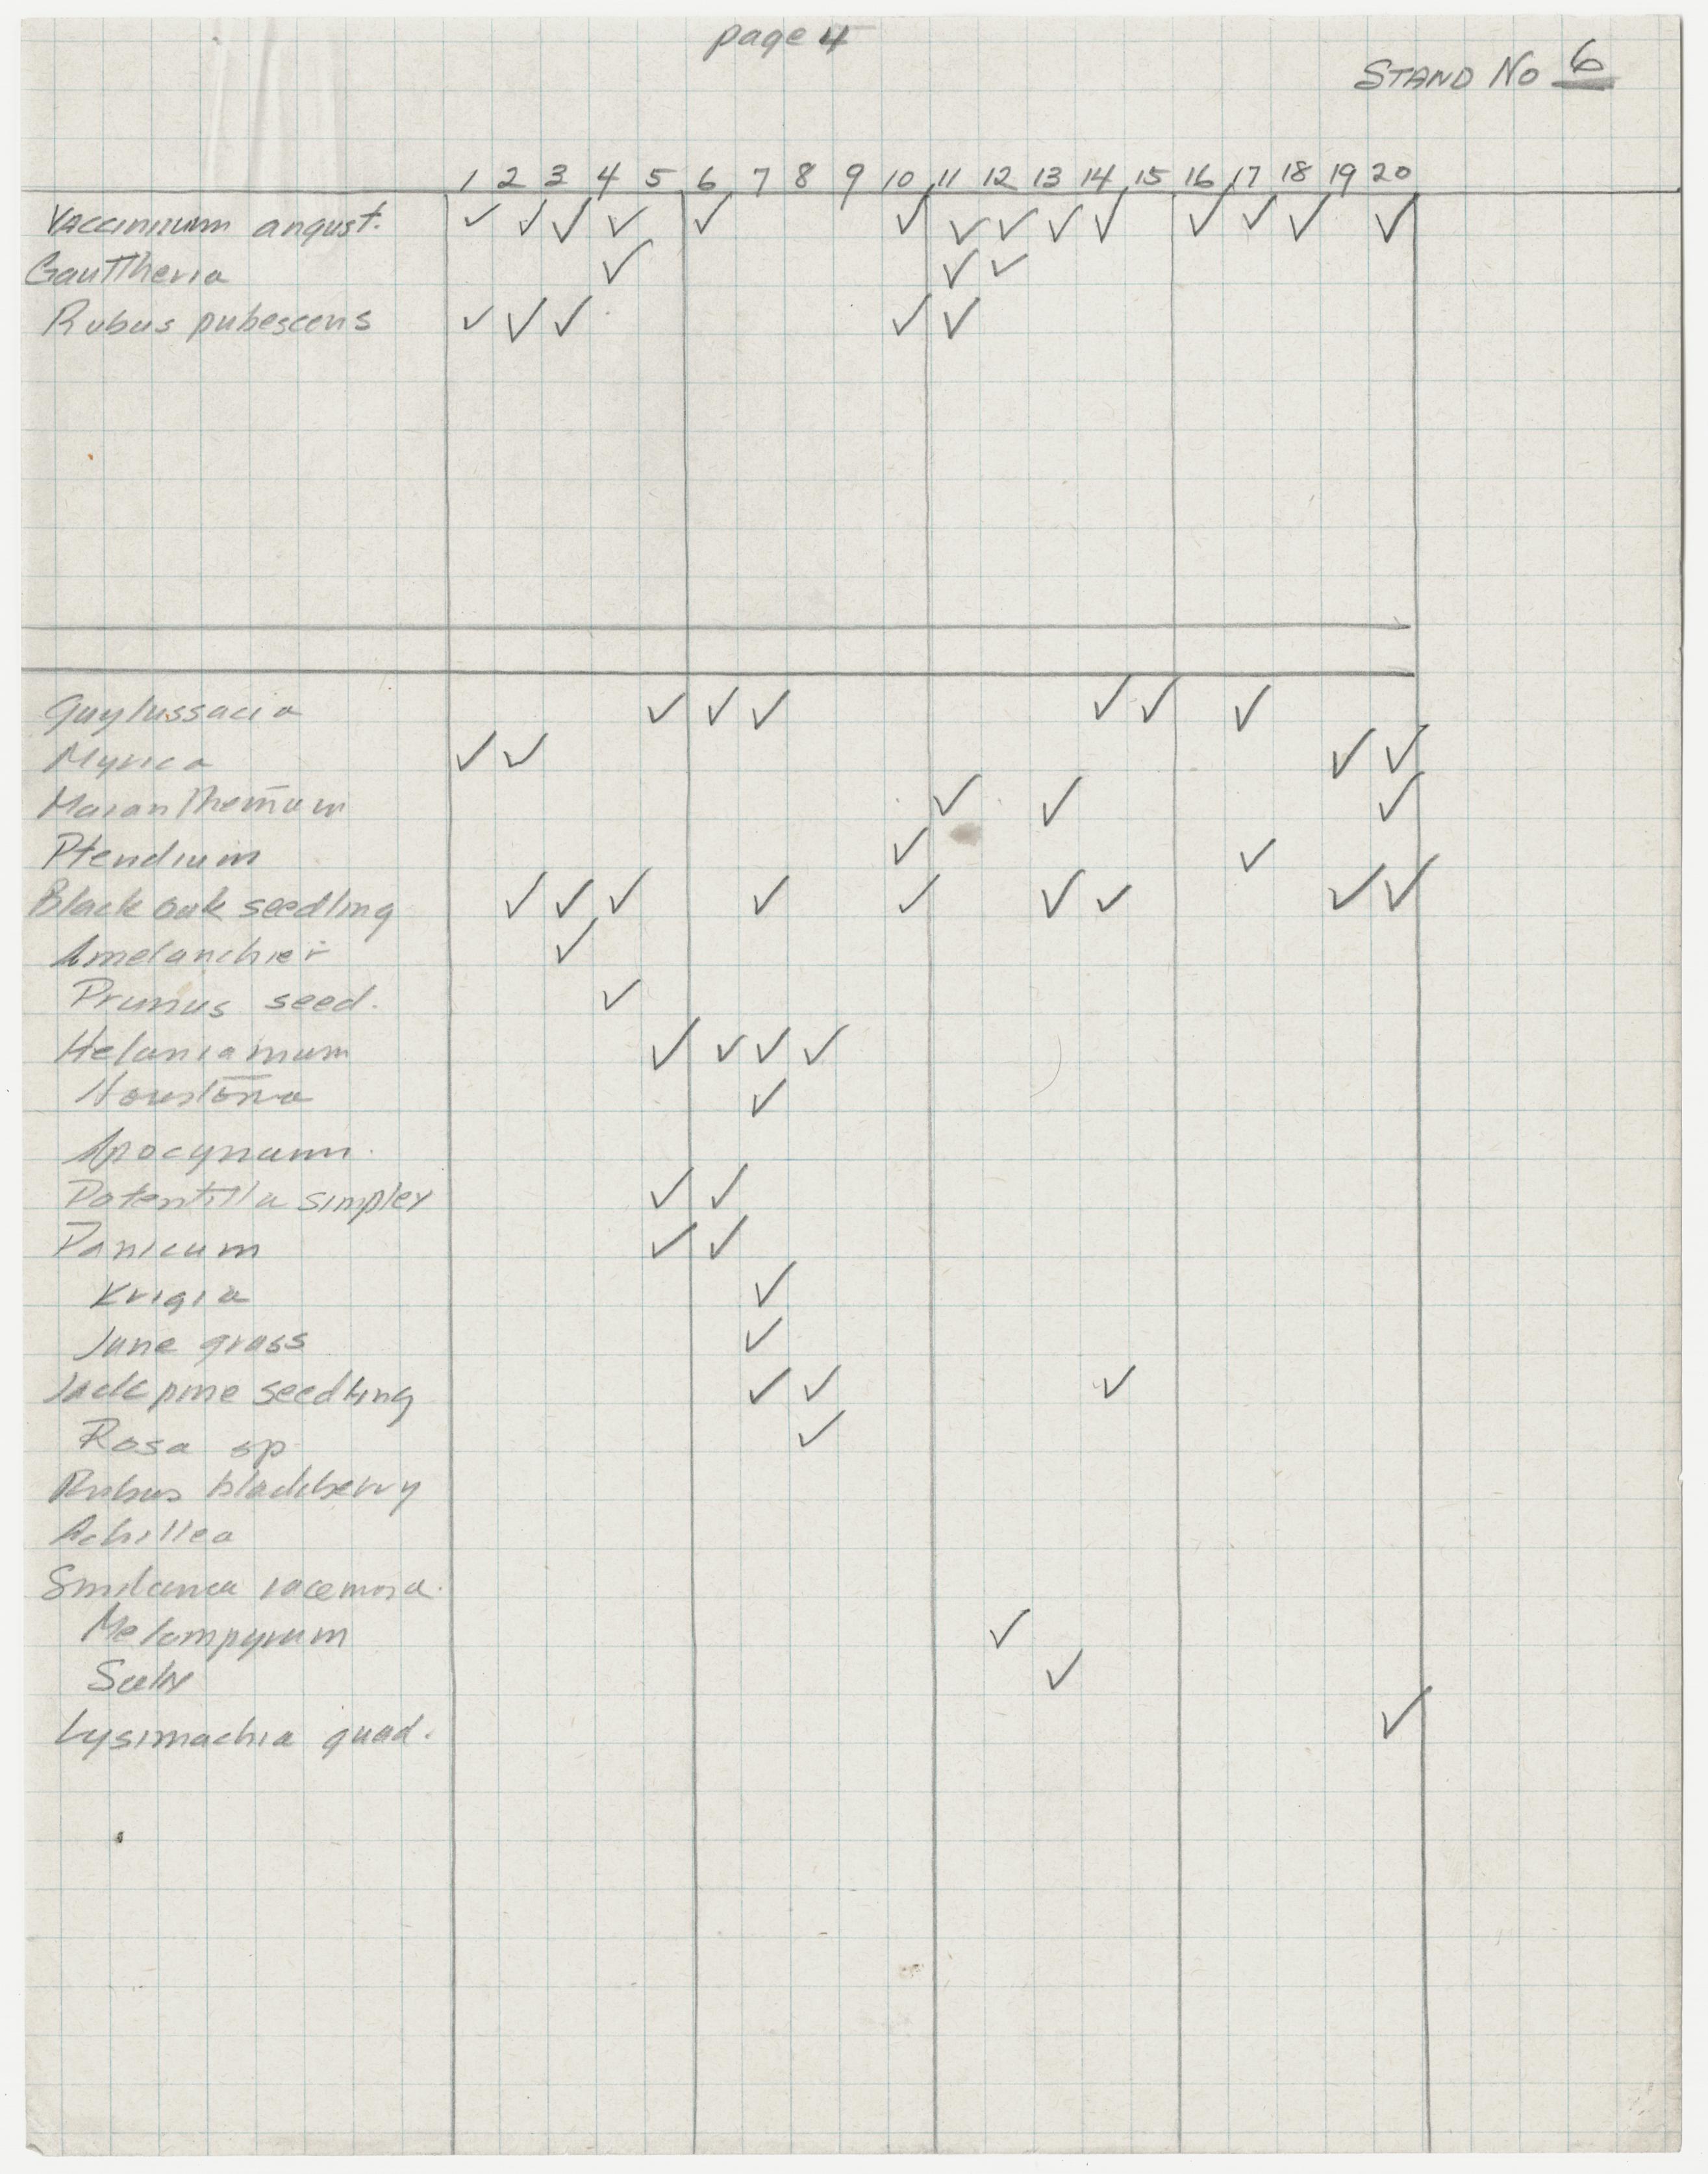 page 4
STAND No 6
1 2 3 4 5 6 7 8 9 10 11 12 13 14 15 16 17 18 19 20
Vaccinium angust. ✓ ✓ ✓ ✓ ✓ ✓ ✓ ✓ ✓ ✓ ✓ ✓ ✓ ✓
Gaultheria ✓ ✓ ✓
Rubus pubescens ✓ ✓ ✓ ✓ ✓
Gaylussacia ✓ ✓ ✓ ✓ ✓ ✓
Myrica ✓ ✓ ✓ ✓
Maianthemum ✓ ✓ ✓
Pteridium ✓ ✓
Black oak seedling ✓ ✓ ✓ ✓ ✓ ✓ ✓ ✓ ✓
Amelanchier ✓
Prunus seed. ✓
Helaniamum ✓ ✓ ✓ ✓
Houstonia ✓
Apocynum.
Potentilla simplex ✓ ✓
Panicum ✓ ✓
Krigia ✓
June grass ✓
Jack pine seedling ✓ ✓ ✓
Rosa sp ✓
Rubus blackberry
Achillea
Smilacina racemosa.
Melampyrum ✓
Salix ✓
Lysimachia quad. ✓